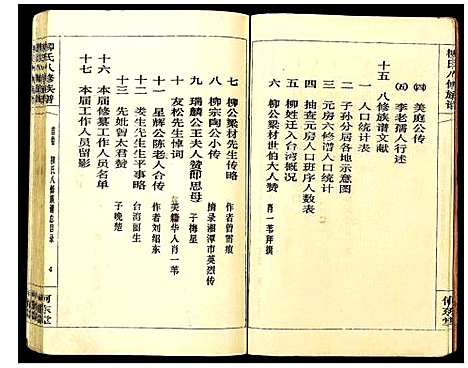 柳氏八修族谱
(四) 美庭公传
(五) 李老孺人行述
十五 八修族谱文献
一 人口统计表
二 子孙分居各地示意图
三 元房六修谱人口统计
四 抽查元房人口班序人数表
五 柳姓迁入台湾概况
六 柳公梁材世伯大人赞 肖一苇拜撰
何东堂
七 柳公梁材先生传略 作者曾霄痕
八 柳宗陶公小传 摘录湘潭市英烈传
九 瑞麟公王夫人赞即思母 子梅星
十 友松先生悼词 美籍华人肖一苇
十一 星辉公陈老人合传 作者刘绍东
十二 娄生先生生平事略 台湾韶生
十三 先妣曾太君赞 子晚楚
十六 本届修纂工作人员名单
十七 本届工作人员留影
柳氏八修族谱
首卷 柳氏八修族谱总目录 4
河东堂